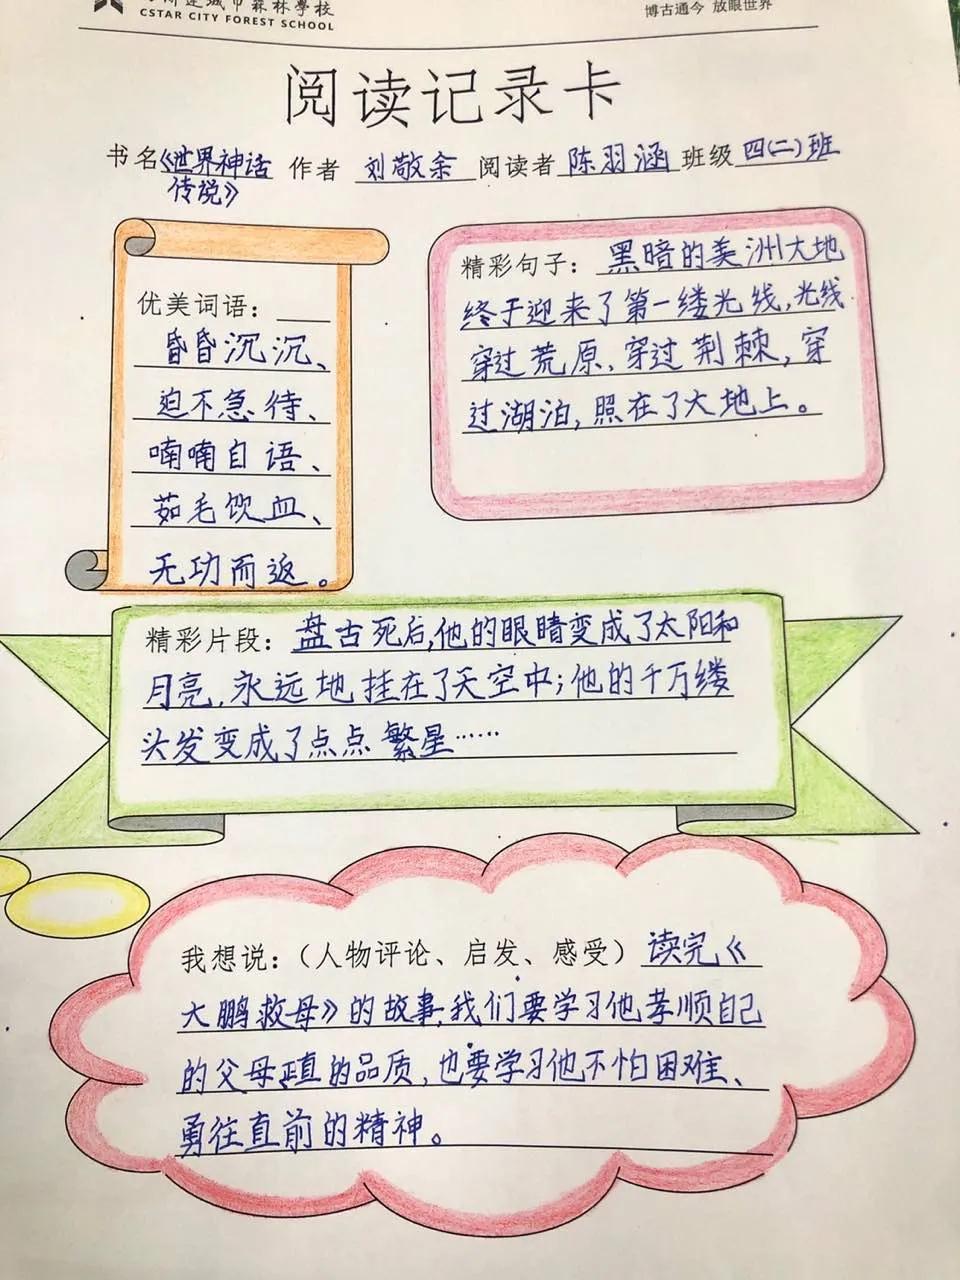 城市森林學校
CSTAR CITY FOREST SCHOOL
博古通今 放眼世界
阅读记录卡
书名《世界神话 作者 刘敬余 阅读者 陈羽涵 班级 四(二)班
传说》
优美词语：
昏昏沉沉、
迫不急待、
喃喃自语、
茹毛饮血、
无功而返。
精彩句子：黑暗的美洲大地
终于迎来了第一缕光线,光线
穿过荒原、穿过荆棘,穿
过湖泊,照在了大地上。
精彩片段：盘古死后,他的眼睛变成了太阳和
月亮,永远地挂在了天空中；他的千万缕
头发变成了点点繁星……
我想说：（人物评论、启发、感受）读完《
大鹏救母》的故事,我们要学习他孝顺自己
的父母正直的品质,也要学习他不怕困难、
勇往直前的精神。